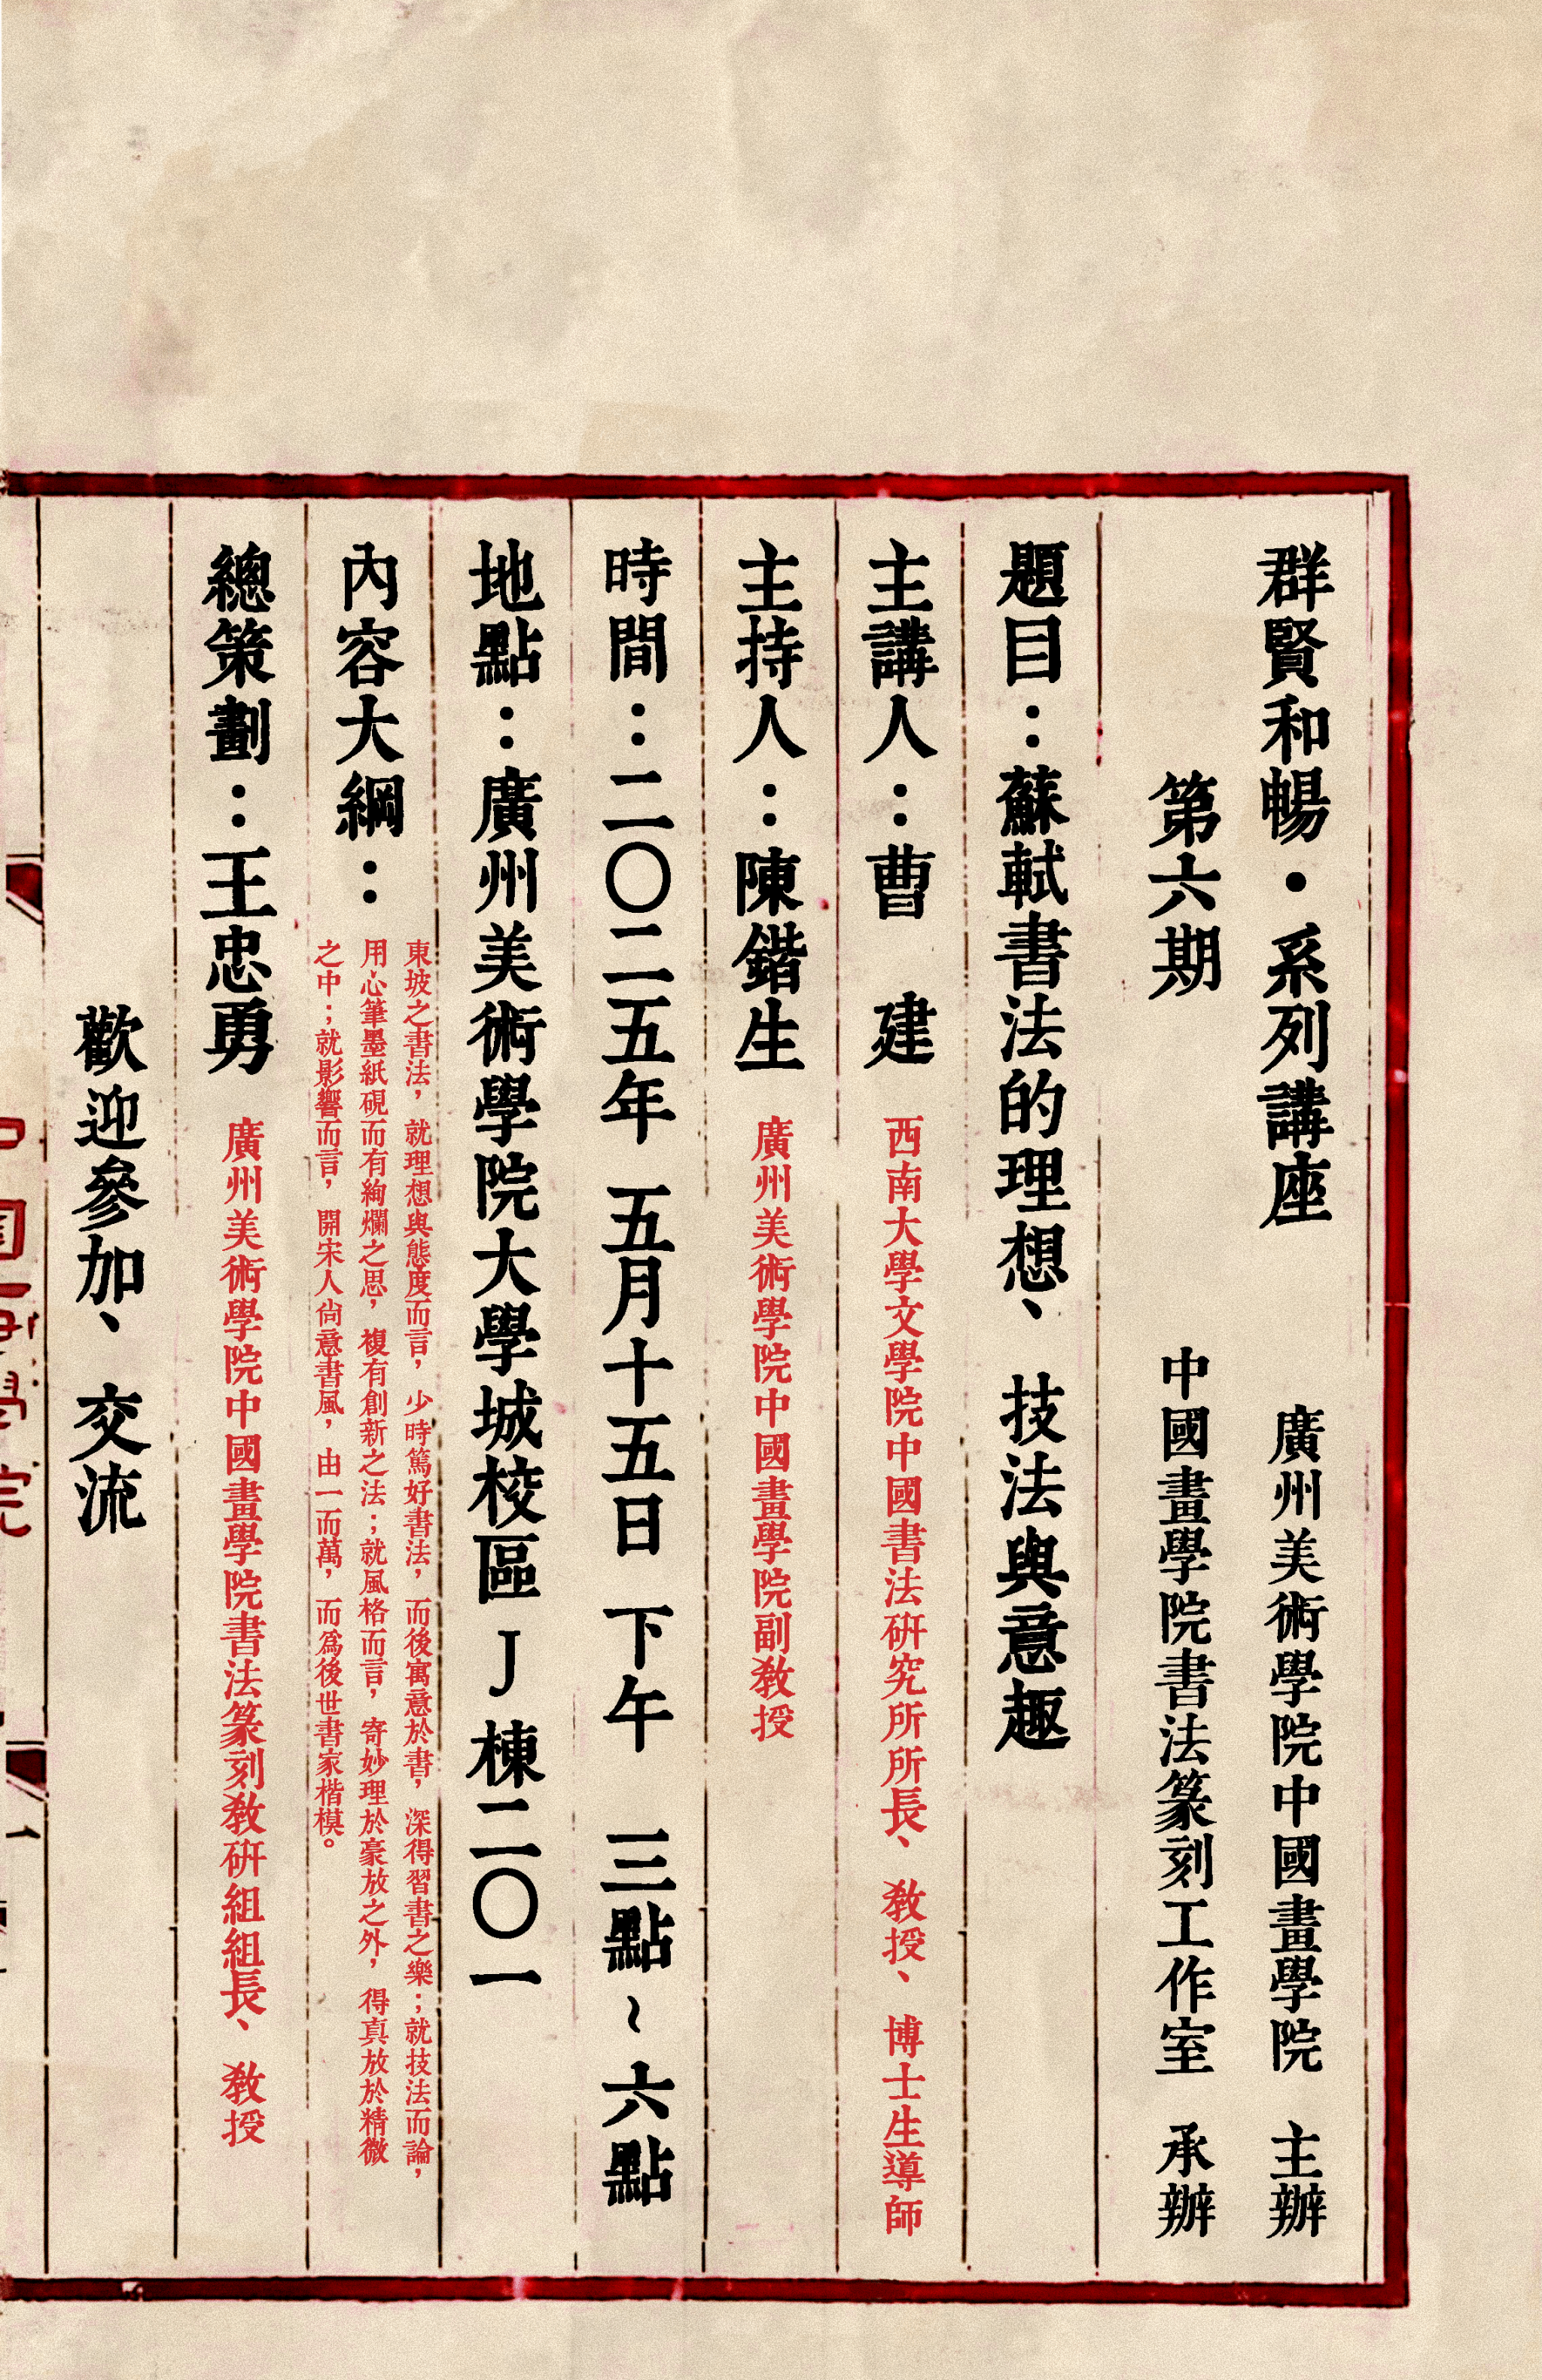 群賢和暢・系列講座 廣州美術學院中國畫學院 主辦
第六期 中國畫學院書法篆刻工作室 承辦
題目：蘇軾書法的理想、技法與意趣
主講人：曹 建 西南大學文學院中國書法研究所所長、教授、博士生導師
主持人：陳鍇生 廣州美術學院中國畫學院副教授
時間：二〇二五年 五月十五日 下午 三點~六點
地點：廣州美術學院大學城校區 J 棟二〇一
內容大綱：
東坡之書法，就理想與態度而言，少時篤好書法，而後寓意於書，深得習書之樂；就技法而論，
用心筆墨紙硯而有絢爛之思，複有創新之法；就風格而言，寄妙理於豪放之外，得真放於精微
之中；就影響而言，開宋人尚意書風，由一而萬，而為後世書家楷模。
總策劃：王忠勇 廣州美術學院中國畫學院書法篆刻教研組組長、教授
歡迎參加、交流